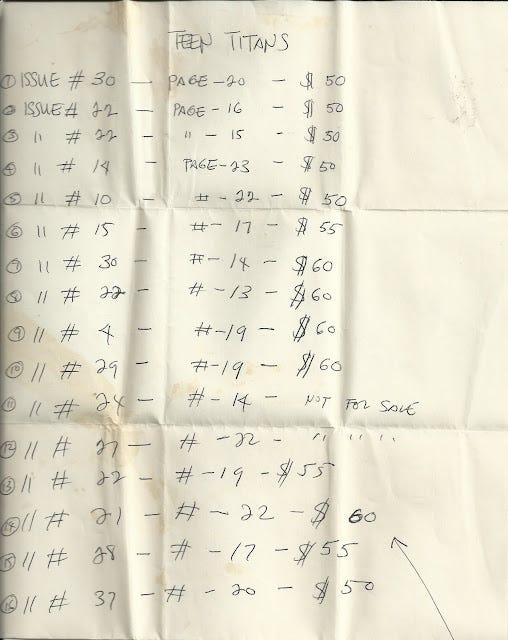 TEEN TITANS
① ISSUE # 30 — PAGE - 20 - $ 50
② ISSUE # 22 — PAGE - 16 - $ 50
③ " # 22 - " - 15 - $ 50
④ " # 14 - PAGE - 23 - $ 50
⑤ " # 10 - # - 22 - $ 50
⑥ " # 15 - # - 17 - $ 55
⑦ " # 30 - # - 14 - $ 60
⑧ " # 22 - # - 13 - $ 60
⑨ " # 4 - # - 19 - $ 60
⑩ " # 29 - # - 19 - $ 60
⑪ " # 24 - # - 14 - NOT FOR SALE
⑫ " # 27 - # - 22 - " " "
⑬ " # 22 - # - 19 - $ 55
⑭ " # 21 - # - 22 - $ 60
⑮ " # 28 - # - 17 - $ 55
⑯ " # 37 - # - 20 - $ 50